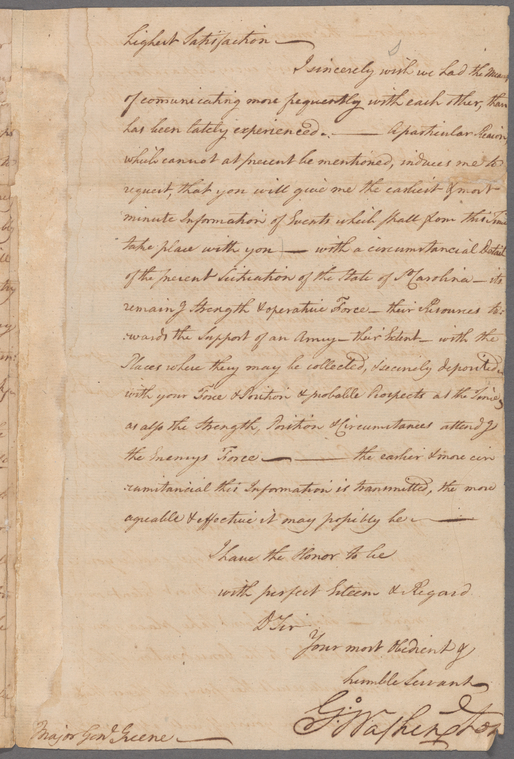 highest Satisfaction —
I sincerely wish we had the Means
of comunicating more frequently with each other, than
has been lately experienced. — A particular Reason,
which cannot at present be mentioned, induces me to
request, that you will give me the earliest & most
minute Information of Events which shall from this Time
take place with you — with a circumstancial Detail
of the present Situation of the State of So Carolina — its
remaing Strength & operative Force — their Resources to-
-wards the Support of an Army — their Extent — with the
Places where they may be collected, & securely deposited —
with your Force & Position & probable Prospects at the Time,
as also the Strength, Position & Circumstances attendg
the Enemys Force — the earlier & more cir
cumstancial this Information is transmitted, the more
agreable & effective it may possibly be. —
I have the Honor to be
with perfect Esteem & Regard
Dr Sir
Your most Obedient &
humble Servant
Go: Washington
Major Genl Greene —